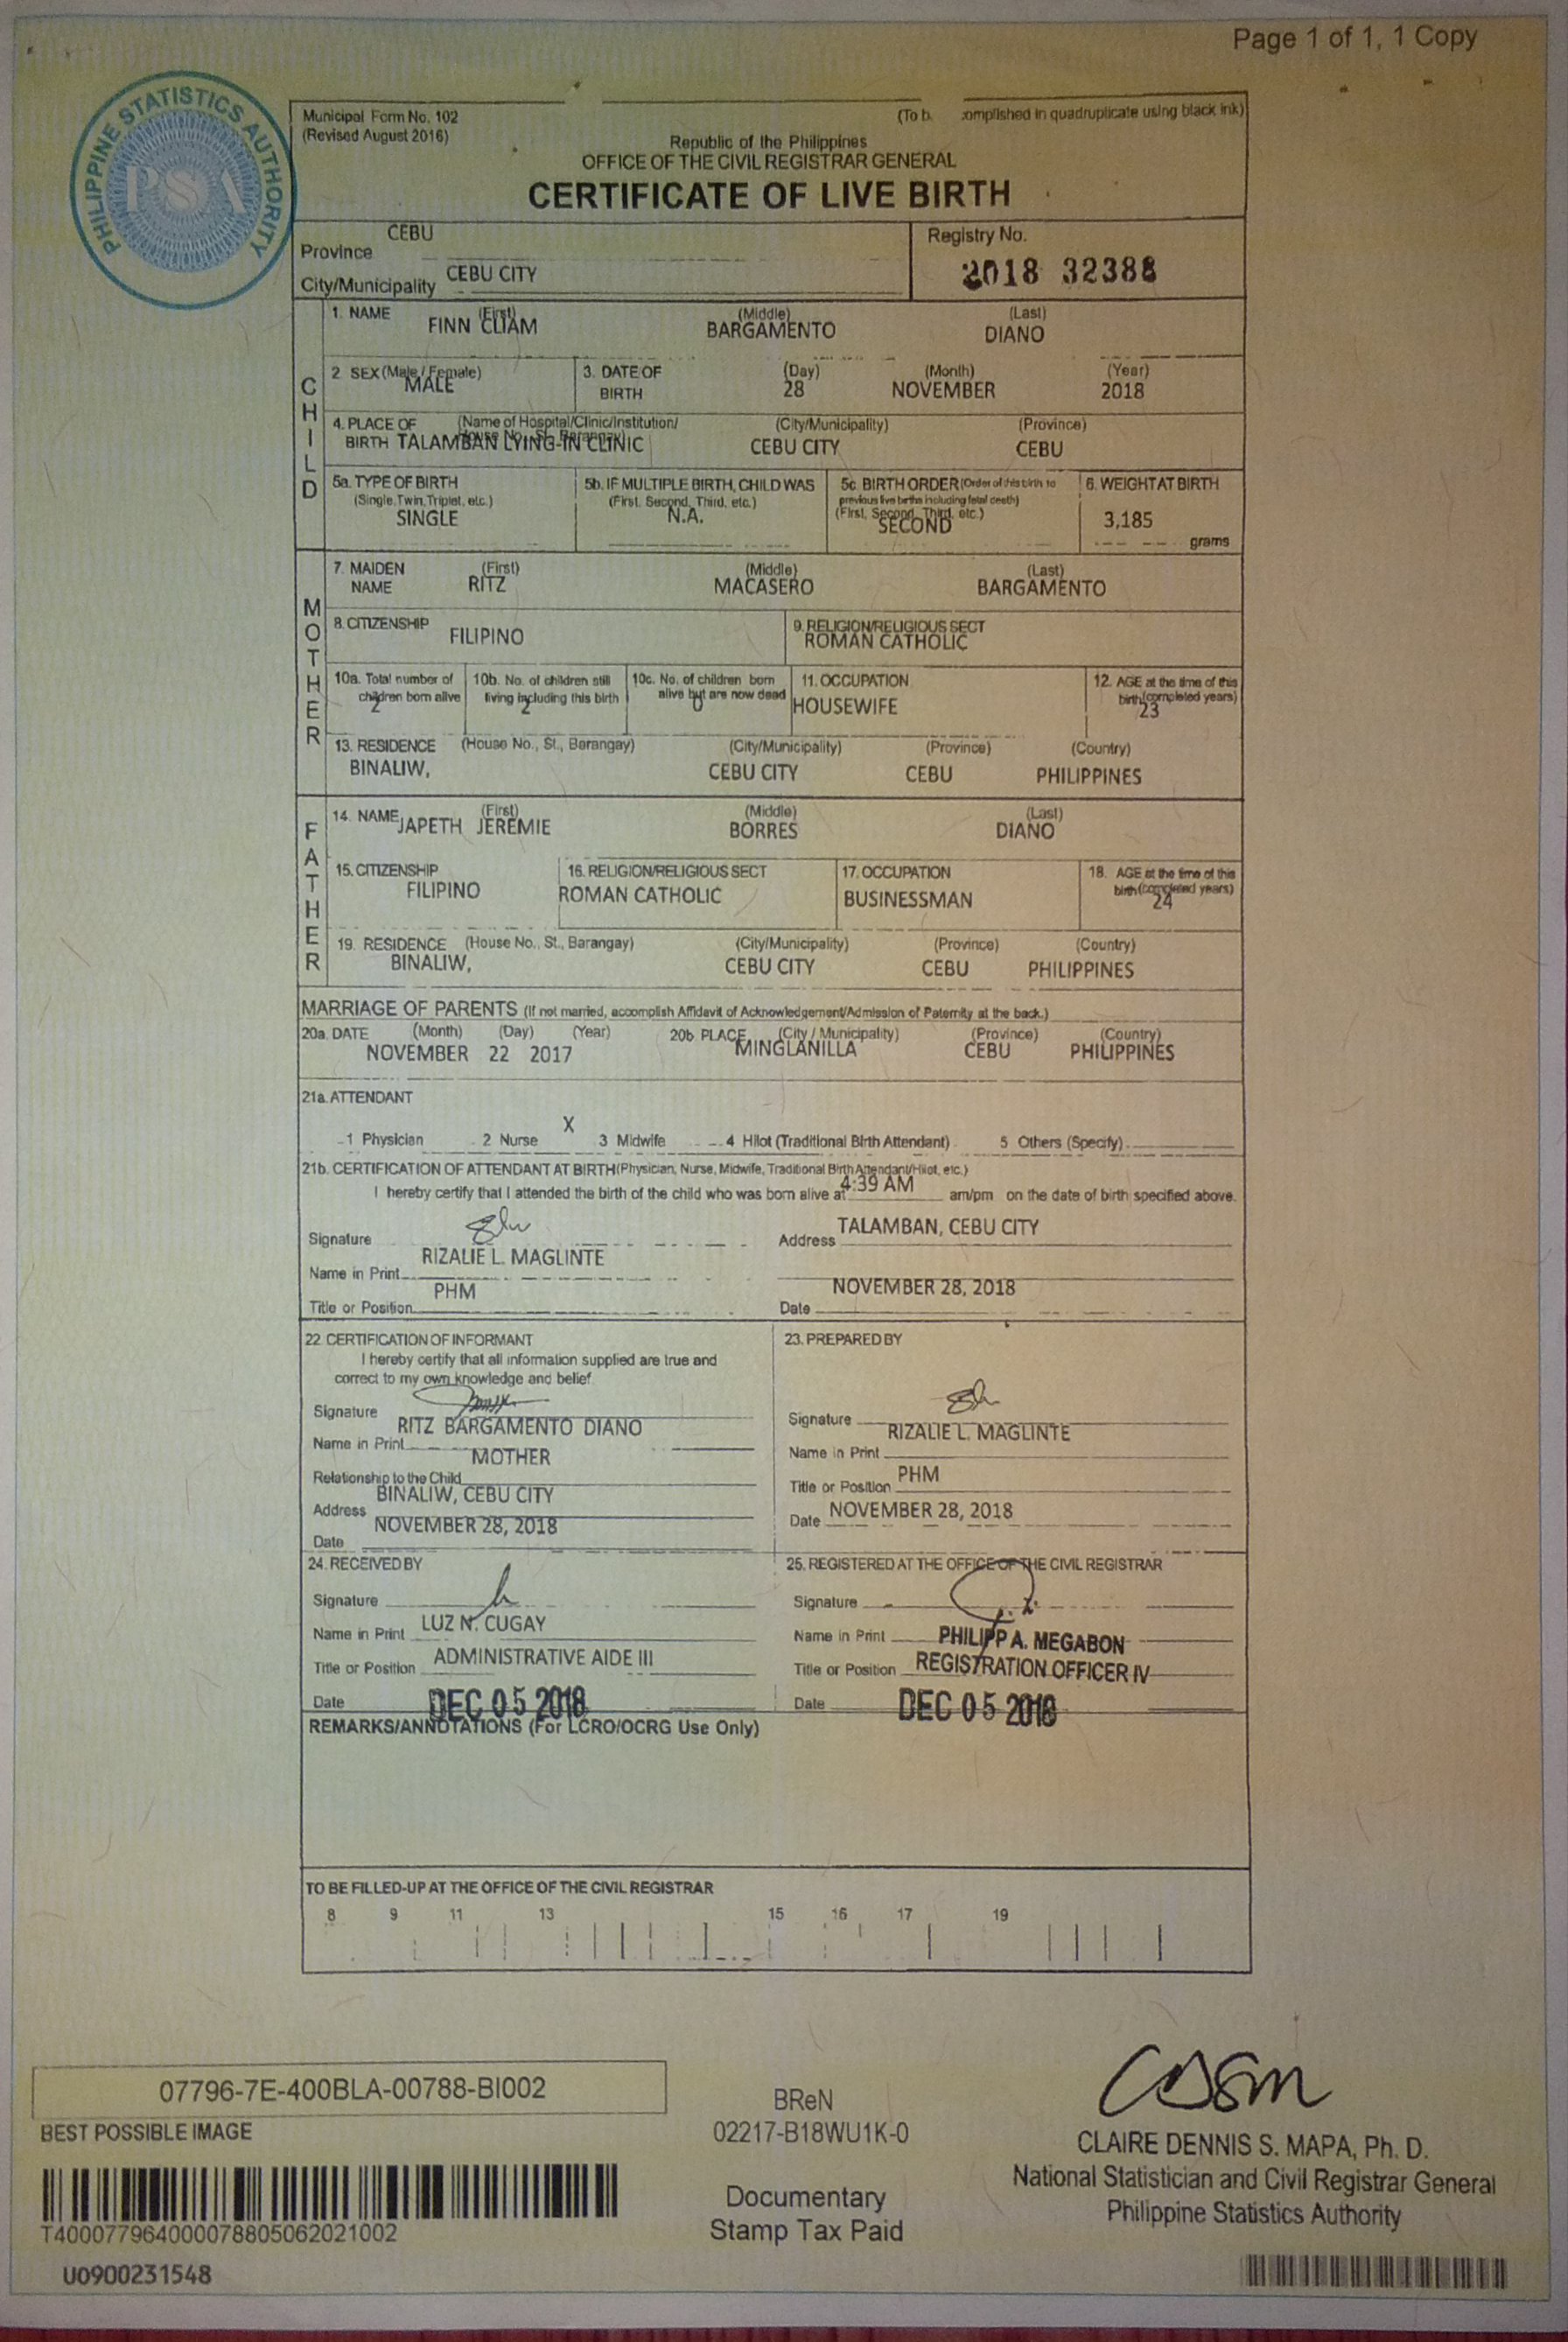 Page 1 of 1, 1 Copy
PHILIPPINE STATISTICS AUTHORITY
PSA
Municipal Form No. 102 (To b omplished in quadruplicate using black ink)
(Revised August 2016)
Republic of the Philippines
OFFICE OF THE CIVIL REGISTRAR GENERAL
CERTIFICATE OF LIVE BIRTH
Province CEBU Registry No.
City/Municipality CEBU CITY 2018 32388
CHILD
1. NAME (First) (Middle) (Last)
FINN CLIAM BARGAMENTO DIANO
2. SEX (Male / Female) 3. DATE OF BIRTH (Day) (Month) (Year)
MALE 28 NOVEMBER 2018
4. PLACE OF BIRTH (Name of Hospital/Clinic/Institution/ House No., St., Barangay) (City/Municipality) (Province)
TALAMBAN LYING-IN CLINIC CEBU CITY CEBU
5a. TYPE OF BIRTH (Single, Twin, Triplet, etc.) 5b. IF MULTIPLE BIRTH, CHILD WAS (First, Second, Third, etc.) 5c. BIRTH ORDER (Order of this birth to previous live births including fetal death) (First, Second, Third, etc.) 6. WEIGHT AT BIRTH
SINGLE N.A. SECOND 3,185 grams
MOTHER
7. MAIDEN NAME (First) (Middle) (Last)
RITZ MACASERO BARGAMENTO
8. CITIZENSHIP 9. RELIGION/RELIGIOUS SECT
FILIPINO ROMAN CATHOLIC
10a. Total number of children born alive 10b. No. of children still living including this birth 10c. No. of children born alive but are now dead 11. OCCUPATION 12. AGE at the time of this birth (completed years)
2 2 0 HOUSEWIFE 23
13. RESIDENCE (House No., St., Barangay) (City/Municipality) (Province) (Country)
BINALIW, CEBU CITY CEBU PHILIPPINES
FATHER
14. NAME (First) (Middle) (Last)
JAPETH JEREMIE BORRES DIANO
15. CITIZENSHIP 16. RELIGION/RELIGIOUS SECT 17. OCCUPATION 18. AGE at the time of this birth (completed years)
FILIPINO ROMAN CATHOLIC BUSINESSMAN 24
19. RESIDENCE (House No., St., Barangay) (City/Municipality) (Province) (Country)
BINALIW, CEBU CITY CEBU PHILIPPINES
MARRIAGE OF PARENTS (If not married, accomplish Affidavit of Acknowledgement/Admission of Paternity at the back.)
20a. DATE (Month) (Day) (Year) 20b. PLACE (City / Municipality) (Province) (Country)
NOVEMBER 22 2017 MINGLANILLA CEBU PHILIPPINES
21a. ATTENDANT
X
1 Physician 2 Nurse 3 Midwife 4 Hilot (Traditional Birth Attendant) 5 Others (Specify)
21b. CERTIFICATION OF ATTENDANT AT BIRTH (Physician, Nurse, Midwife, Traditional Birth Attendant/Hilot, etc.)
I hereby certify that I attended the birth of the child who was born alive at 4:39 AM am/pm on the date of birth specified above.
Signature Address TALAMBAN, CEBU CITY
Name in Print RIZALIE L. MAGLINTE
Title or Position PHM Date NOVEMBER 28, 2018
22. CERTIFICATION OF INFORMANT
I hereby certify that all information supplied are true and
correct to my own knowledge and belief.
Signature
Name in Print RITZ BARGAMENTO DIANO
Relationship to the Child MOTHER
Address BINALIW, CEBU CITY
Date NOVEMBER 28, 2018
23. PREPARED BY
Signature
Name in Print RIZALIE L. MAGLINTE
Title or Position PHM
Date NOVEMBER 28, 2018
24. RECEIVED BY
Signature
Name in Print LUZ N. CUGAY
Title or Position ADMINISTRATIVE AIDE III
Date DEC 05 2018
25. REGISTERED AT THE OFFICE OF THE CIVIL REGISTRAR
Signature
Name in Print PHILIPP A. MEGABON
Title or Position REGISTRATION OFFICER IV
Date DEC 05 2018
REMARKS/ANNOTATIONS (For LCRO/OCRG Use Only)
TO BE FILLED-UP AT THE OFFICE OF THE CIVIL REGISTRAR
8 9 11 13 15 16 17 19
07796-7E-400BLA-00788-BI002
BEST POSSIBLE IMAGE
T400077964000078805062021002
U0900231548
BReN
02217-B18WU1K-0
Documentary
Stamp Tax Paid
CLAIRE DENNIS S. MAPA, Ph. D.
National Statistician and Civil Registrar General
Philippine Statistics Authority